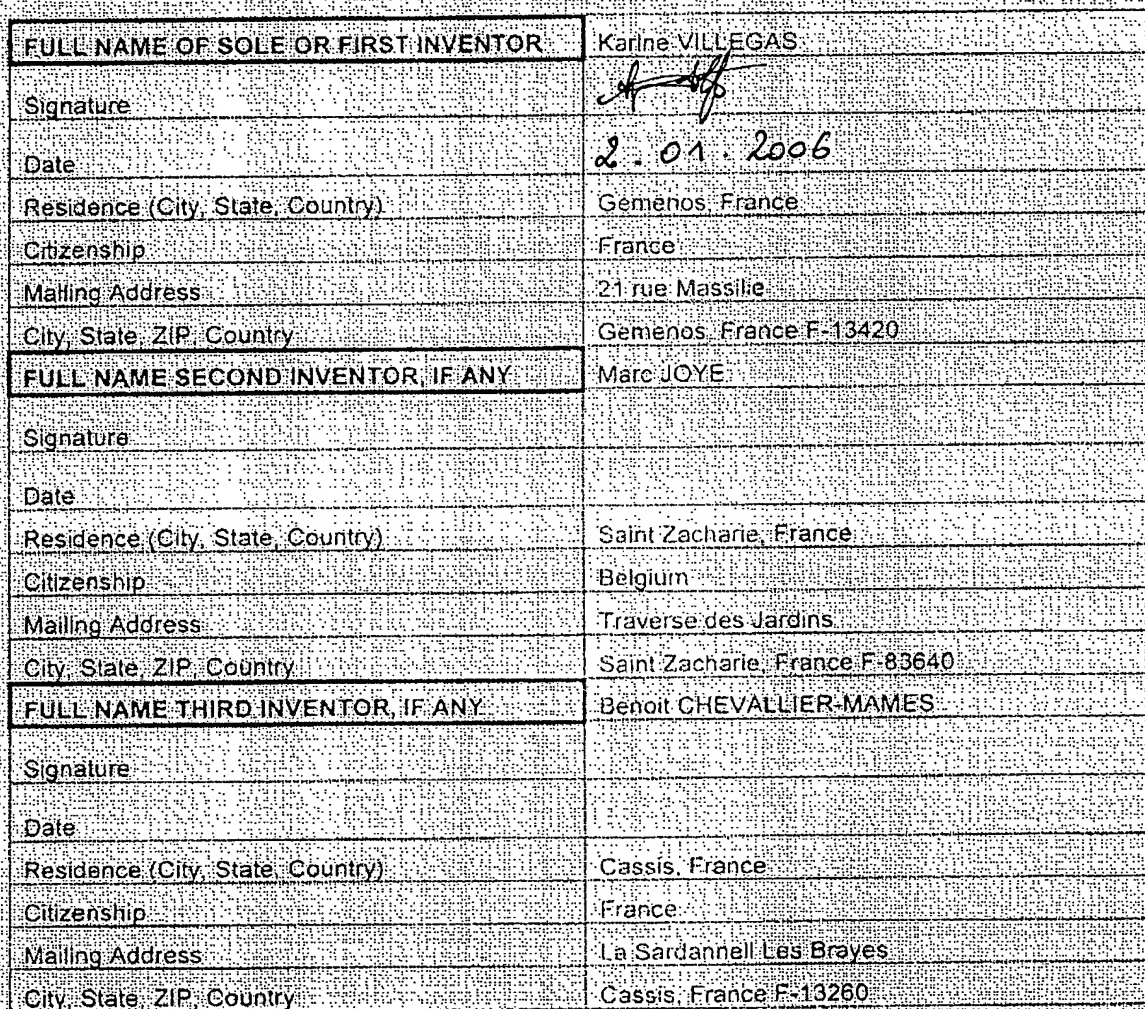 FULL NAME OF SOLE OR FIRST INVENTOR Karine VILLEGAS
Signature
Date 2.01.2006
Residence (City, State, Country) Gemenos, France
Citizenship France
Mailing Address 21 rue Massilie
City, State, ZIP, Country Gemenos, France F-13420
FULL NAME SECOND INVENTOR, IF ANY Marc JOYE
Signature
Date
Residence (City, State, Country) Saint Zacharie, France
Citizenship Belgium
Mailing Address Traverse des Jardins
City, State, ZIP, Country Saint Zacharie, France F-83640
FULL NAME THIRD INVENTOR, IF ANY Benoit CHEVALLIER-MAMES
Signature
Date
Residence (City, State, Country) Cassis, France
Citizenship France
Mailing Address La Sardannell Les Brayes
City, State, ZIP, Country Cassis, France F-13260